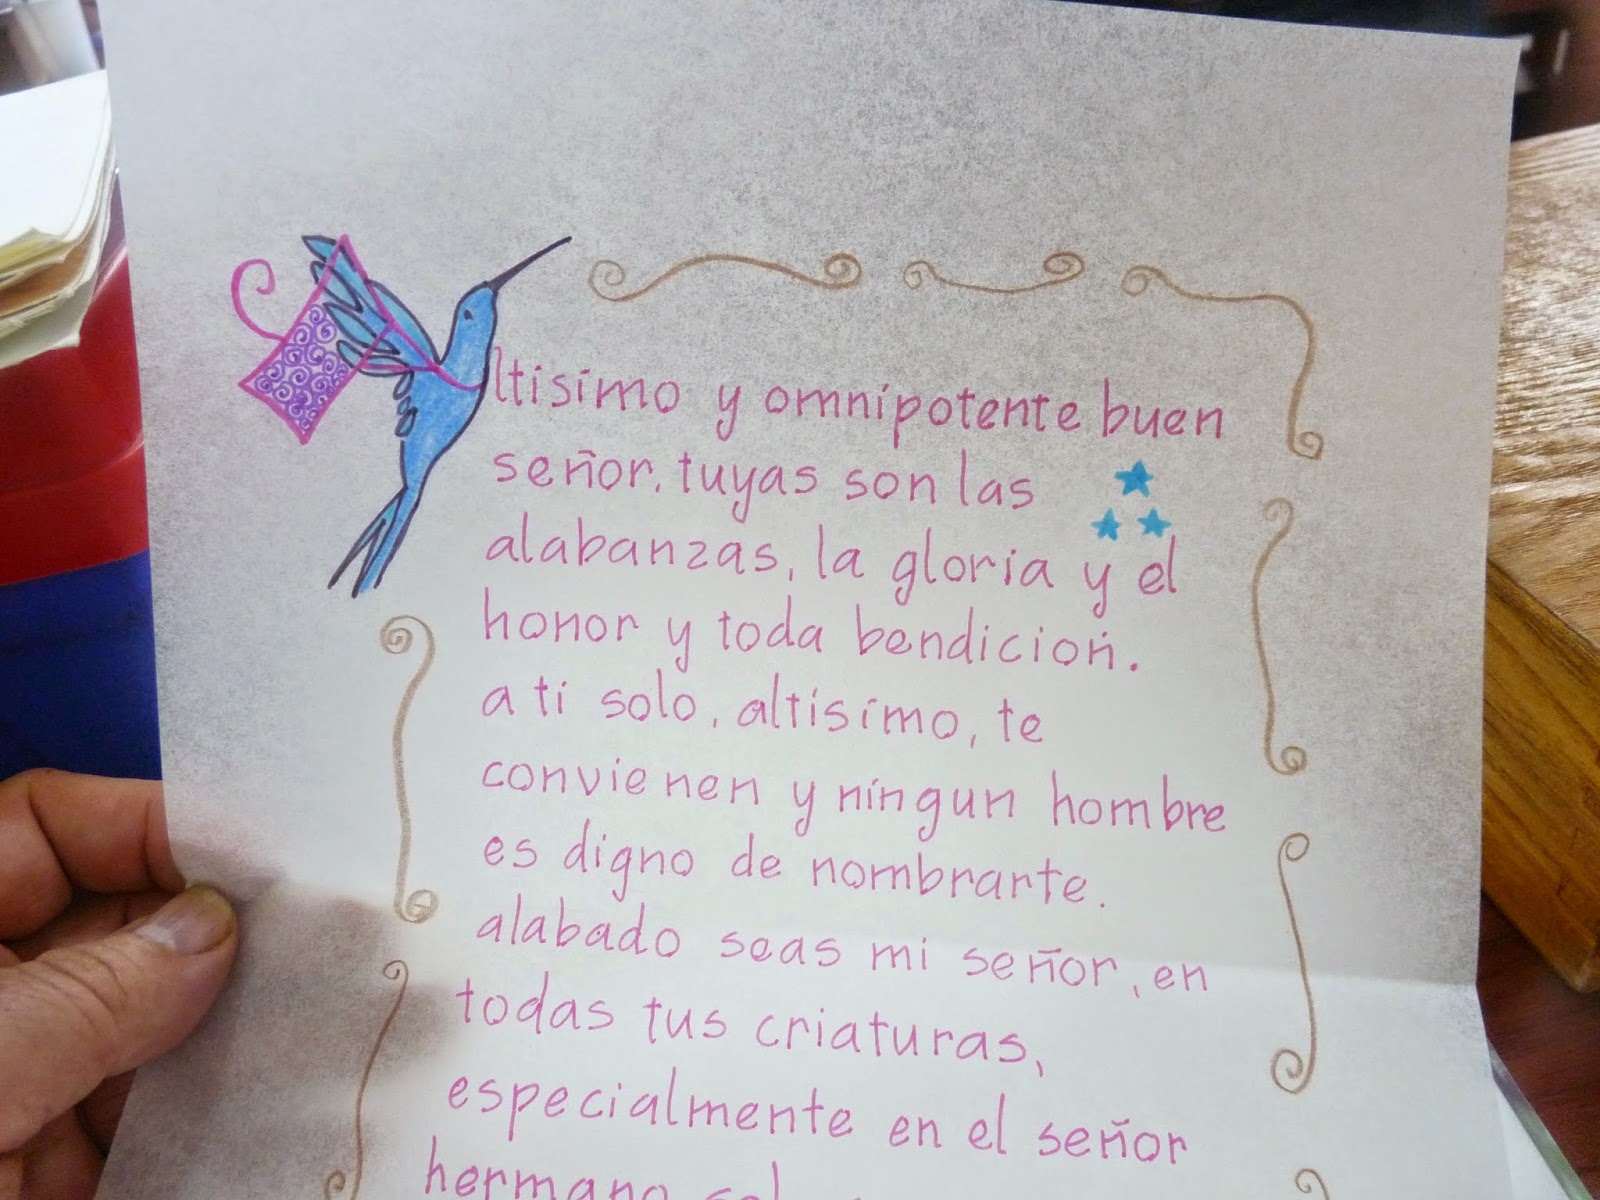 ltisimo y omnipotente buen
señor, tuyas son las
alabanzas, la gloria y el
honor y toda bendición.
a ti solo, altísimo, te
convienen y ningun hombre
es digno de nombrarte.
alabado seas mi señor, en
todas tus criaturas,
especialmente en el señor
hermano sol